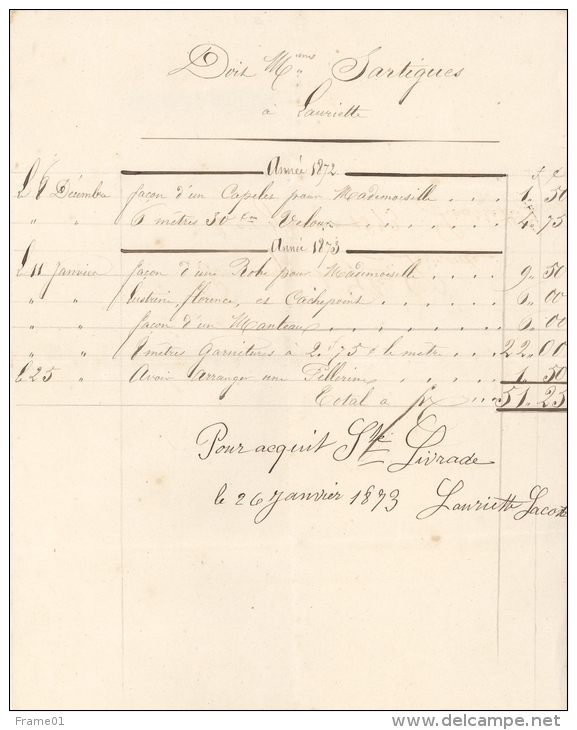 Doit Mme Sartigues
à Lauriette
Année 1872
Le 8 Décembre façon d'un Capeler pour Mademoiselle . . . 1. 50
" " 6 mètres 30 cm Velours . . . . . . 4. 75
Année 1873
Le 11 Janvier façon d'une Robe pour Mademoiselle . . . . 9. 50
" " Lustrine, florence, et Cachepoint . . . . . 6. 00
" " façon d'un Manteau . . . . . . . 6. 00
" " 8 mètres Garnitures à 2.f 75 c le metre . . . 22. 00
Le 25 " Avoir arranger une Pellerine . . . . . 1. 50
Total a fx . . . 51. 25
Pour acquit Ste Livrade
le 26 Janvier 1873 Lauriette Lacoste
Frame01
www.delcampe.net